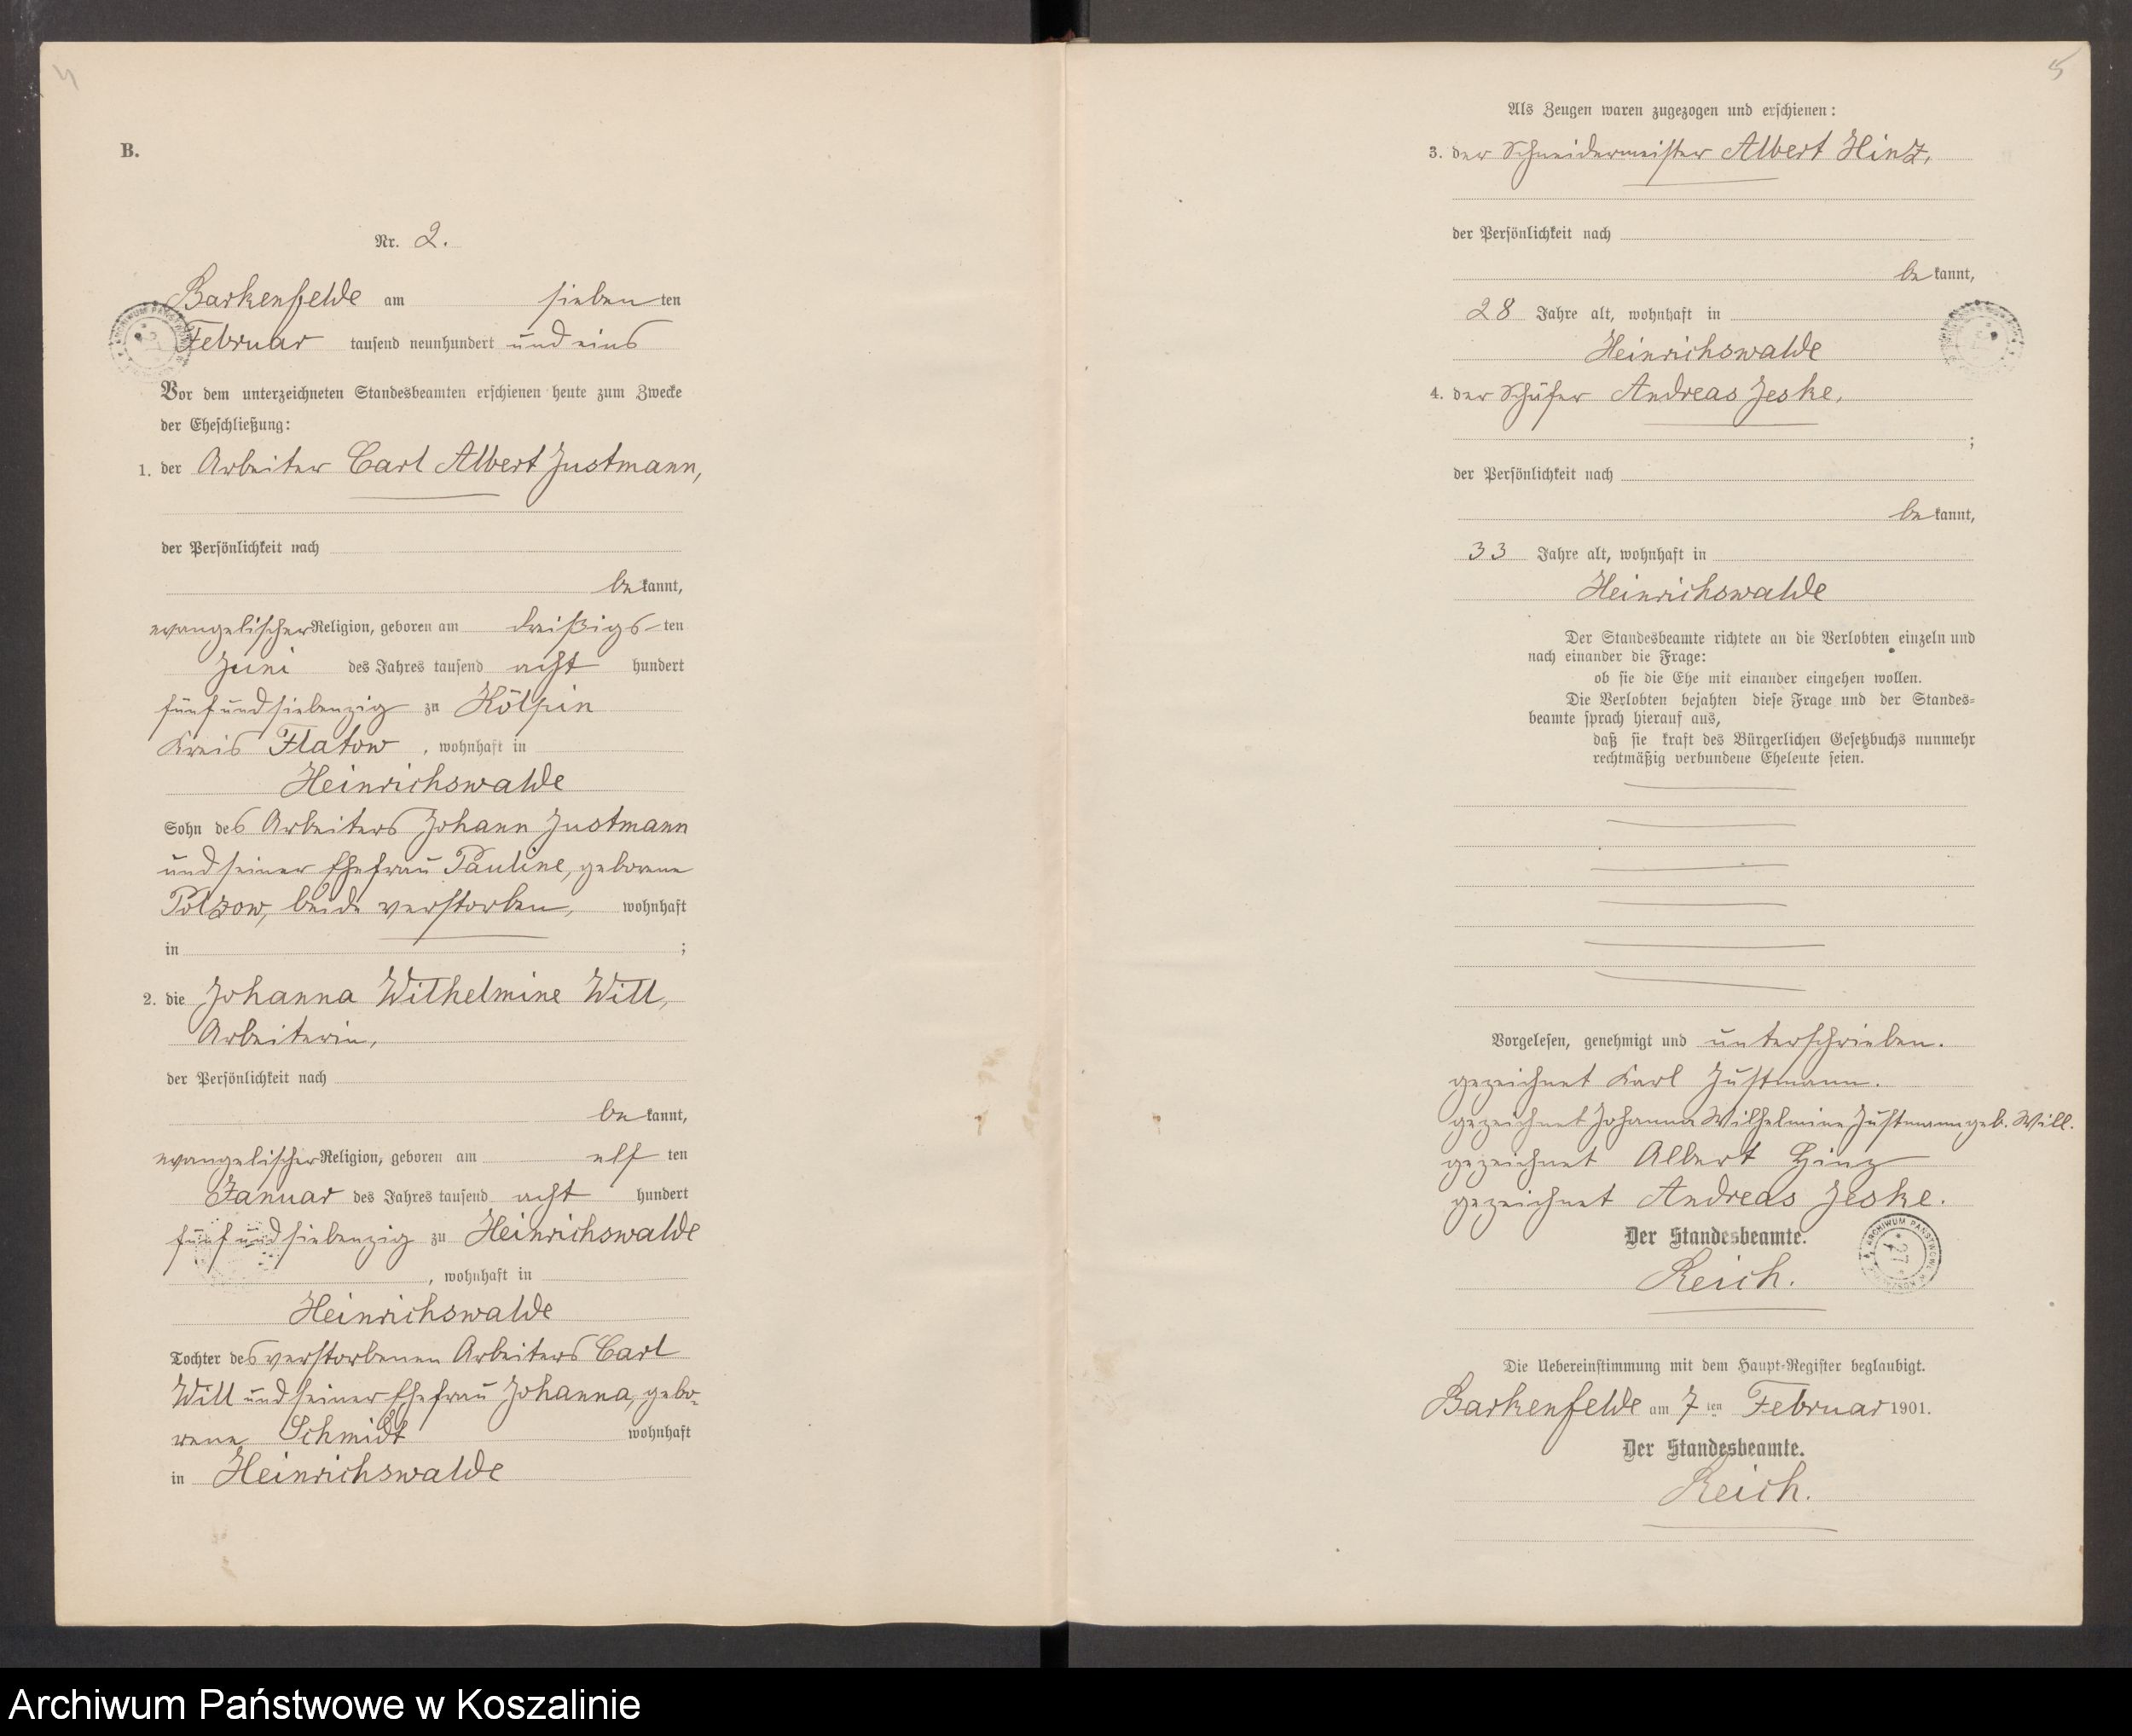 4
B.
Nr. 2.
Barkenfelde am sieben ten
Februar tausend neunhundert und eins
Vor dem unterzeichneten Standesbeamten erschienen heute zum Zwecke
der Eheschließung:
1. der Arbeiter Carl Albert Justmann,
der Persönlichkeit nach
be kannt,
evangelischer Religion, geboren am dreißigs ten
Juni des Jahres tausend acht hundert
fünfundsiebenzig zu Kölpin
Kreis Flatow, wohnhaft in
Heinrichswalde
Sohn des Arbeiters Johann Justmann
und seiner Ehefrau Pauline, geborene
Polzow, beide verstorben, wohnhaft
in ;
2. die Johanna Wilhelmine Will,
Arbeiterin,
der Persönlichkeit nach
be kannt,
evangelischer Religion, geboren am elf ten
Januar des Jahres tausend acht hundert
fünf und siebenzig zu Heinrichswalde
, wohnhaft in
Heinrichswalde
Tochter des verstorbenen Arbeiters Carl
Will und seiner Ehefrau Johanna, gebo-
rene Schmidt wohnhaft
in Heinrichswalde
5
Als Zeugen waren zugezogen und erschienen:
3. der Schneidermeister Albert Hinz,
der Persönlichkeit nach
be kannt,
28 Jahre alt, wohnhaft in
Heinrichswalde
4. der Schäfer Andreas Jeske,
;
der Persönlichkeit nach
be kannt,
33 Jahre alt, wohnhaft in
Heinrichswalde
Der Standesbeamte richtete an die Verlobten einzeln und
nach einander die Frage:
ob sie die Ehe mit einander eingehen wollen.
Die Verlobten bejahten diese Frage und der Standes-
beamte sprach hierauf aus,
daß sie kraft des Bürgerlichen Gesetzbuchs nunmehr
rechtmäßig verbundene Eheleute seien.
Vorgelesen, genehmigt und unterschrieben.
gezeichnet Karl Justmann.
gezeichnet Johanna Wilhelmine Justmann geb. Will.
gezeichnet Albert Hinz
gezeichnet Andreas Jeske.
Der Standesbeamte.
Reich.
Die Uebereinstimmung mit dem Haupt-Register beglaubigt.
Barkenfelde am 7 ten Februar 1901.
Der Standesbeamte.
Reich.
Archiwum Państwowe w Koszalinie